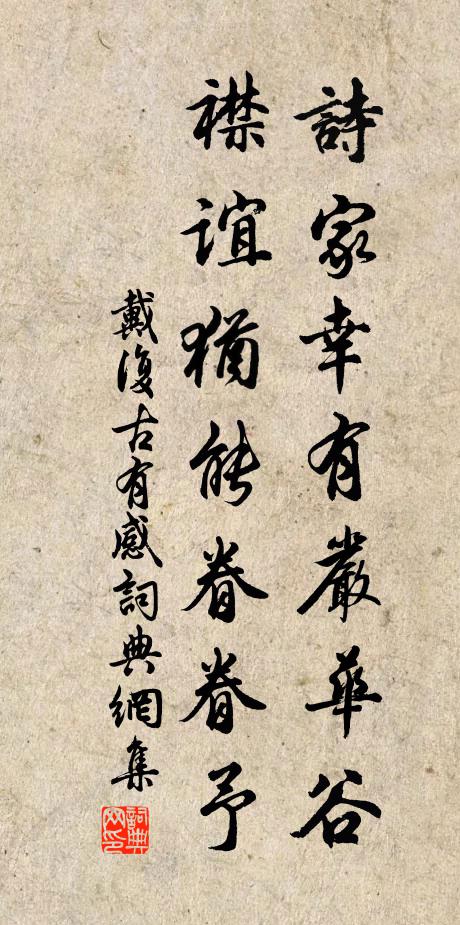 詩家幸有嚴華谷
襟誼猶能眷眷予
戴復古有感詞典網集
詞典網印